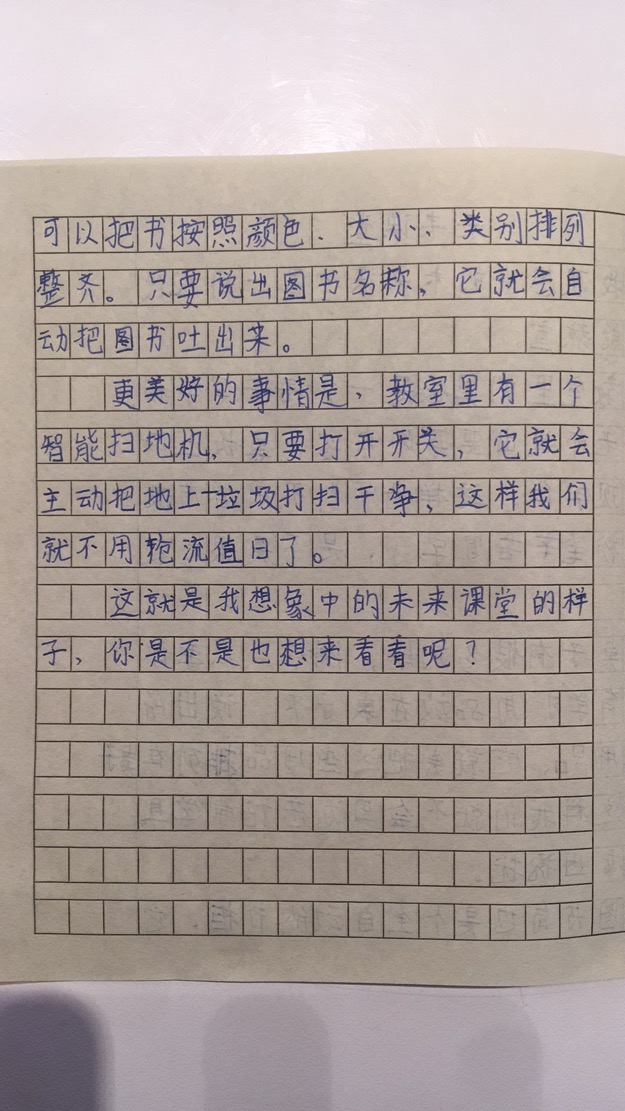 可以把书按照颜色、大小、类别排列
整齐。只要说出图书名称，它就会自
动把图书吐出来。
更美好的事情是，教室里有一个
智能扫地机，只要打开开关，它就会
主动把地上垃圾打扫干净，这样我们
就不用轮流值日了。
这就是我想象中的未来课堂的样
子，你是不是也想来看看呢？